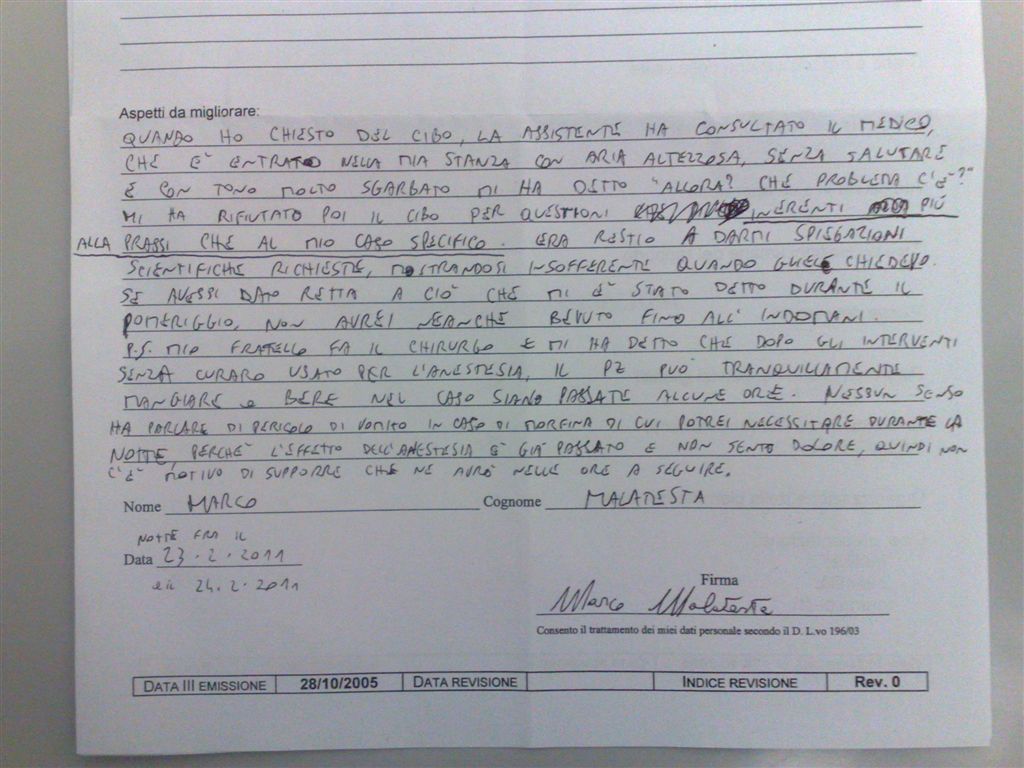 Aspetti da migliorare:
QUANDO HO CHIESTO DEL CIBO, LA ASSISTENTE HA CONSULTATO IL MEDICO,
CHE E' ENTRATO NELLA MIA STANZA CON ARIA ALTEZZOSA, SENZA SALUTARE
E CON TONO MOLTO SGARBATO MI HA DETTO "ALLORA? CHE PROBLEMA C'È?"
MI HA RIFIUTATO POI IL CIBO PER QUESTIONI INERENTI PIÙ
ALLA PRASSI CHE AL MIO CASO SPECIFICO. ERA RESTIO A DARMI SPIEGAZIONI
SCIENTIFICHE RICHIESTE, MOSTRANDOSI INSOFFERENTE QUANDO GLIELE CHIEDEVO.
SE AVESSI DATO RETTA A CIÒ CHE MI E' STATO DETTO DURANTE IL
POMERIGGIO, NON AVREI NEANCHE BEVUTO FINO ALL'INDOMANI.
P.S. MIO FRATELLO FA IL CHIRURGO E MI HA DETTO CHE DOPO GLI INTERVENTI
SENZA CURARO USATO PER L'ANESTESIA, IL PZ PUÒ TRANQUILLAMENTE
MANGIARE e BERE NEL CASO SIANO PASSATE ALCUNE ORE. NESSUN SENSO
HA PARLARE DI PERICOLO DI VOMITO IN CASO DI MORFINA DI CUI POTREI NECESSITARE DURANTE LA
NOTTE, PERCHÈ L'EFFETTO DELL'ANESTESIA È GIÀ PASSATO E NON SENTO DOLORE, QUINDI NON
C'È MOTIVO DI SUPPORRE CHE NE AVRÒ NELLE ORE A SEGUIRE.
Nome MARCO Cognome MALATESTA
NOTTE FRA IL
Data 23.2.2011
e il 24.2.2011
Firma
Marco Malatesta
Consento il trattamento dei miei dati personale secondo il D. L.vo 196/03
DATA III EMISSIONE 28/10/2005 DATA REVISIONE INDICE REVISIONE Rev. 0